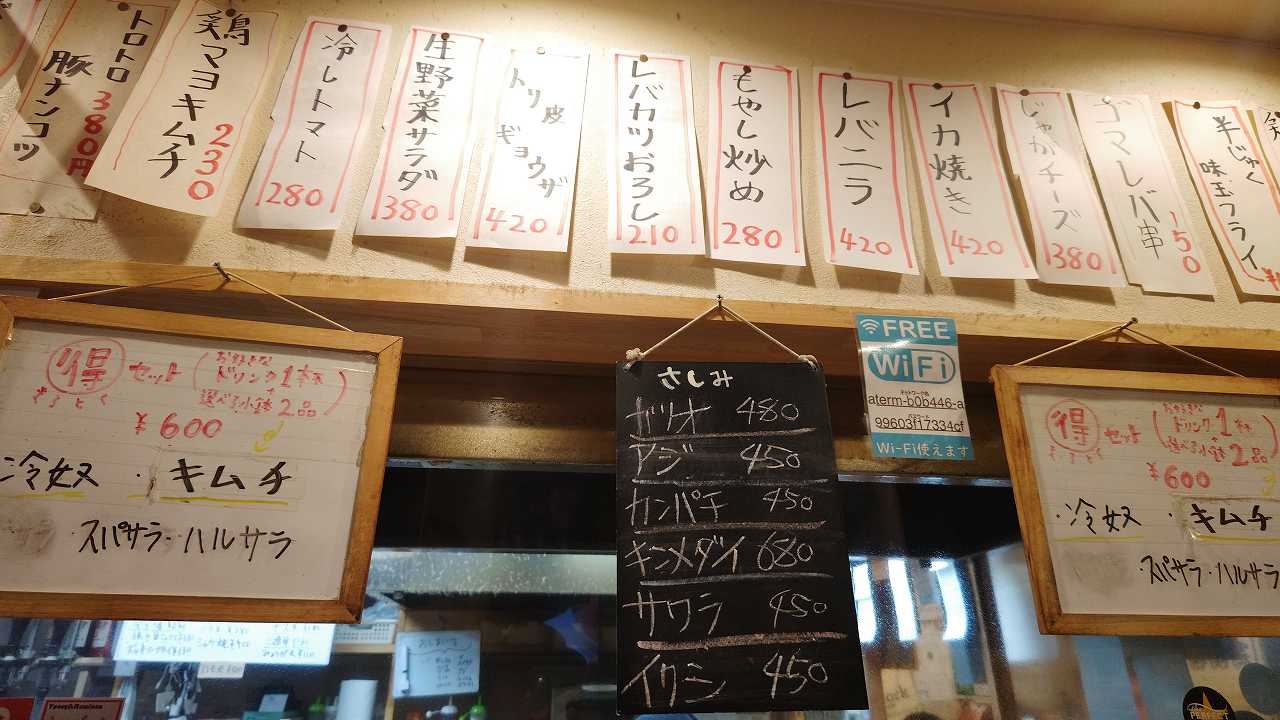 トロトロ
豚ナンコツ
380円
鶏マヨキムチ
230
冷しトマト
280
生野菜サラダ
380
トリ皮
ギョウザ
420
レバカツおろし
210
もやし炒め
280
レバニラ
420
イカ焼き
420
じゃがチーズ
380
ゴマレバ串
150
半じゅく
味玉フライ
得 セット
まるとく
お好きな
ドリンク1杯
+
選べる小鉢2品
¥600
冷奴・キムチ
スパサラ・ハルサラ
さしみ
カツオ 480
アジ 450
カンパチ 450
キンメダイ 680
サワラ 450
イワシ 450
FREE
WiFi
ネットワーク名
aterm-b0b446-a
パスワード
99603f17334cf
Wi-Fi使えます
得 セット
まるとく
お好きな
ドリンク1杯
+
選べる小鉢2品
¥600
・冷奴・キムチ
スパサラ・ハルサラ
PERFECT